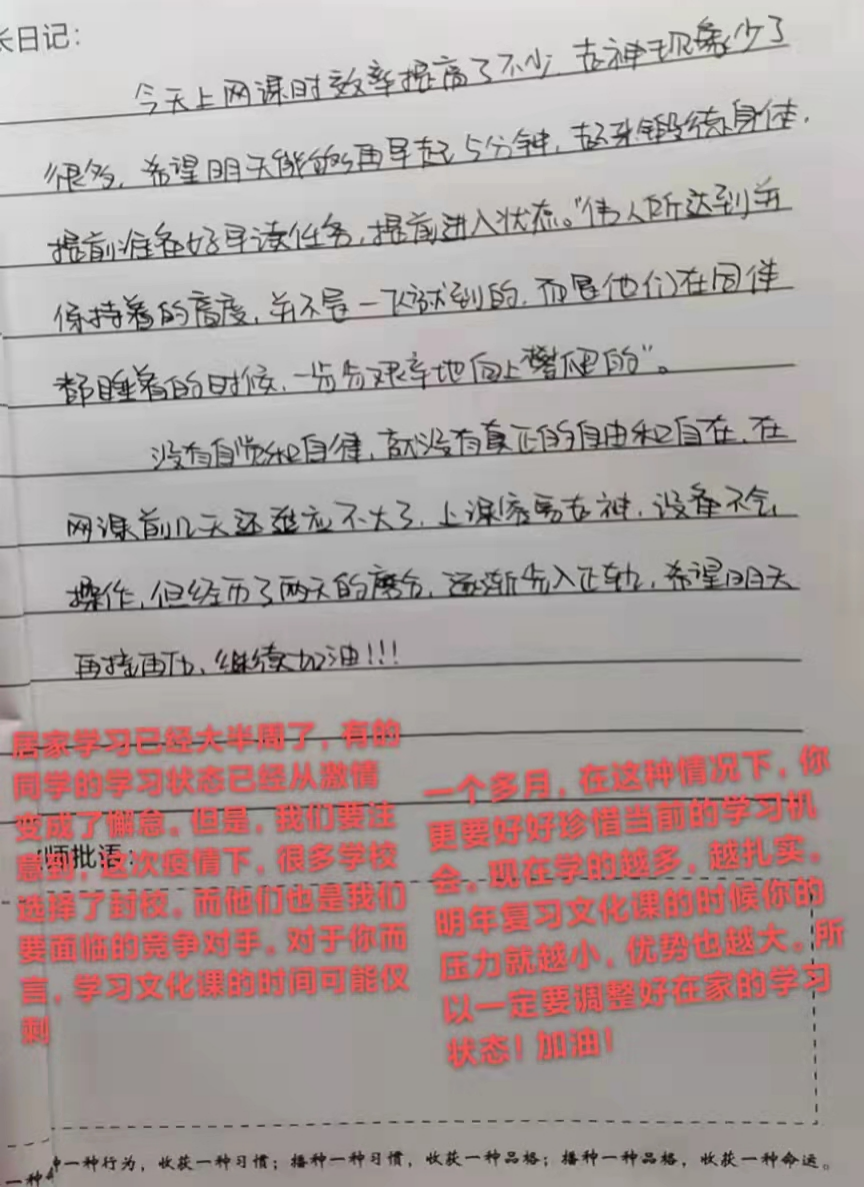 长日记：
今天上网课时效率提高了不少，走神现象少了
很多，希望明天能够再早起5分钟，起来锻练身体，
提前准备好早读任务，提前进入状态。"伟人所达到并
保持着的高度，并不是一飞就到的，而是他们在同伴
都睡着的时候，一步步艰辛地向上攀爬的"。
没有自觉和自律，就没有真正的自由和自在，在
网课前几天还适应不太了，上课容易走神，设备不会
操作，但经历了两天的磨合，逐渐步入正轨，希望明天
再接再厉，继续加油!!!
居家学习已经大半周了，有的
同学的学习状态已经从激情
变成了懈怠。但是，我们要注
意到，这次疫情下，很多学校
师批语：
选择了封校，而他们也是我们
要面临的竞争对手，对于你而
言，学习文化课的时间可能仅
剩
一个多月，在这种情况下，你
更要好好珍惜当前的学习机
会，现在学的越多，越扎实，
明年复习文化课的时候你的
压力就越小，优势也越大。所
以一定要调整好在家的学习
状态！加油！
一种行为，收获一种习惯；播种一种习惯，收获一种品格；播种一种品格，收获一种命运。
一种